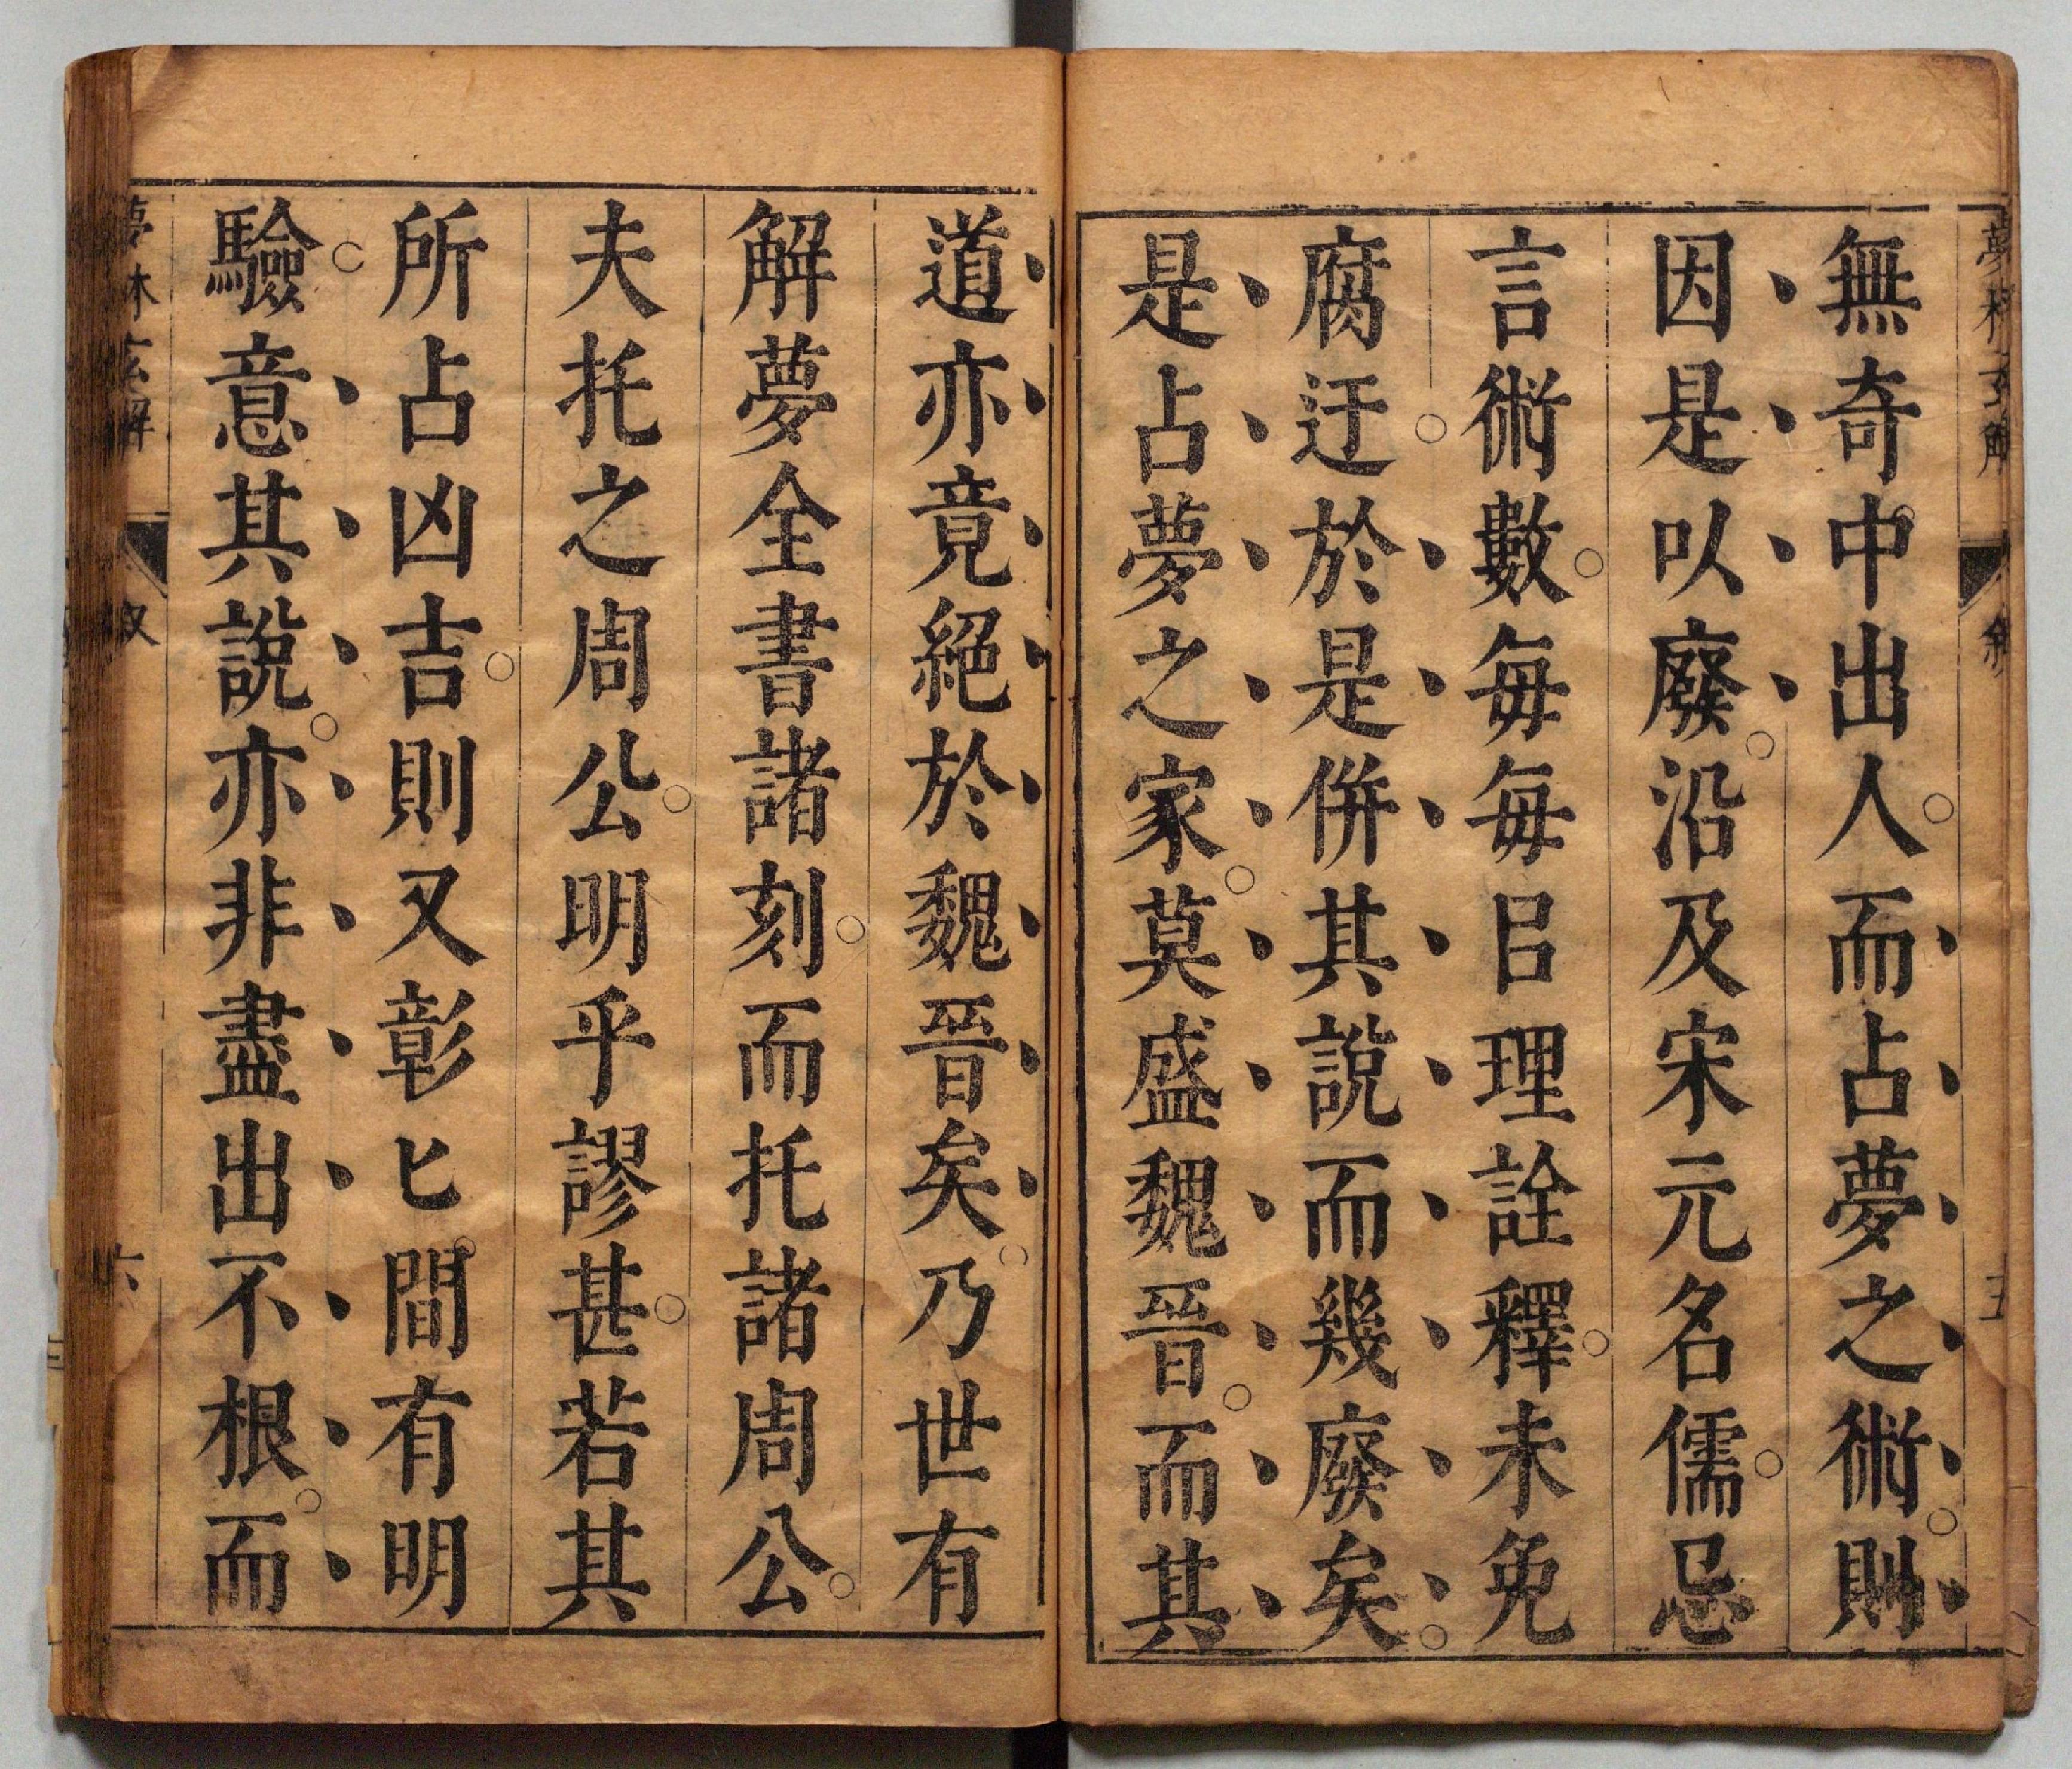 夢林玄解
敘
五
無奇中出人而占夢之術則
因是以廢沿及宋元名儒忌
言術數每每㠯理詮釋未免
腐迂於是併其說而幾廢矣
是占夢之家莫盛魏晉而其
道亦竟絕於魏晉矣乃世有
解夢全書諸刻而托諸周公
夫托之周公明乎謬甚若其
所占凶吉則又彰匕間有明
驗意其說亦非盡出不根而
夢林玄解
六